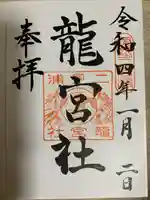 令和四年一月二日
龍宮社
奉拝